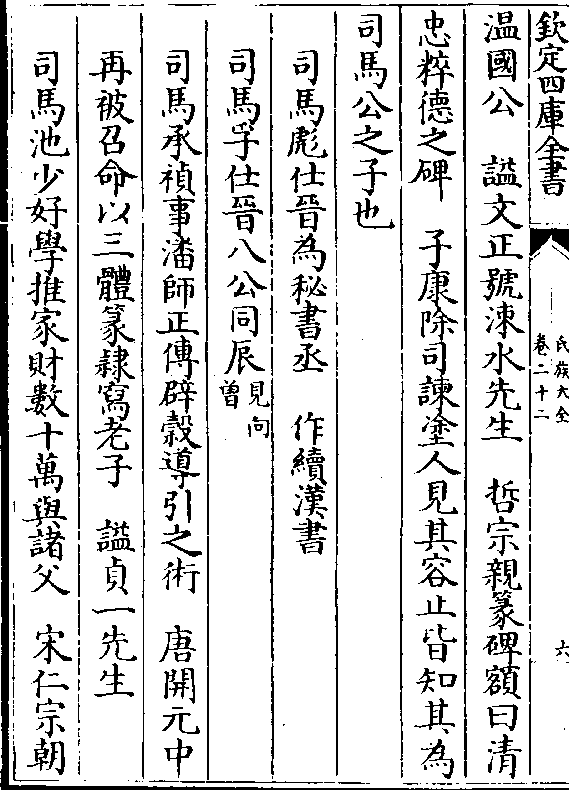 欽定四庫全書
氏族大全
卷二十二
六
溫國公 諡文正號涑水先生 哲宗親篆碑額曰清
忠粹德之碑 子康除司諫塗人見其容止皆知其為
司馬公之子也
司馬彪仕晉為秘書丞 作續漢書
司馬孚仕晉八公同辰見向曾
司馬承禎事潘師正傳辟穀導引之術 唐開元中
再被召命以三體篆隸寫老子 諡貞一先生
司馬池少好學推家財數十萬與諸父 宋仁宗朝